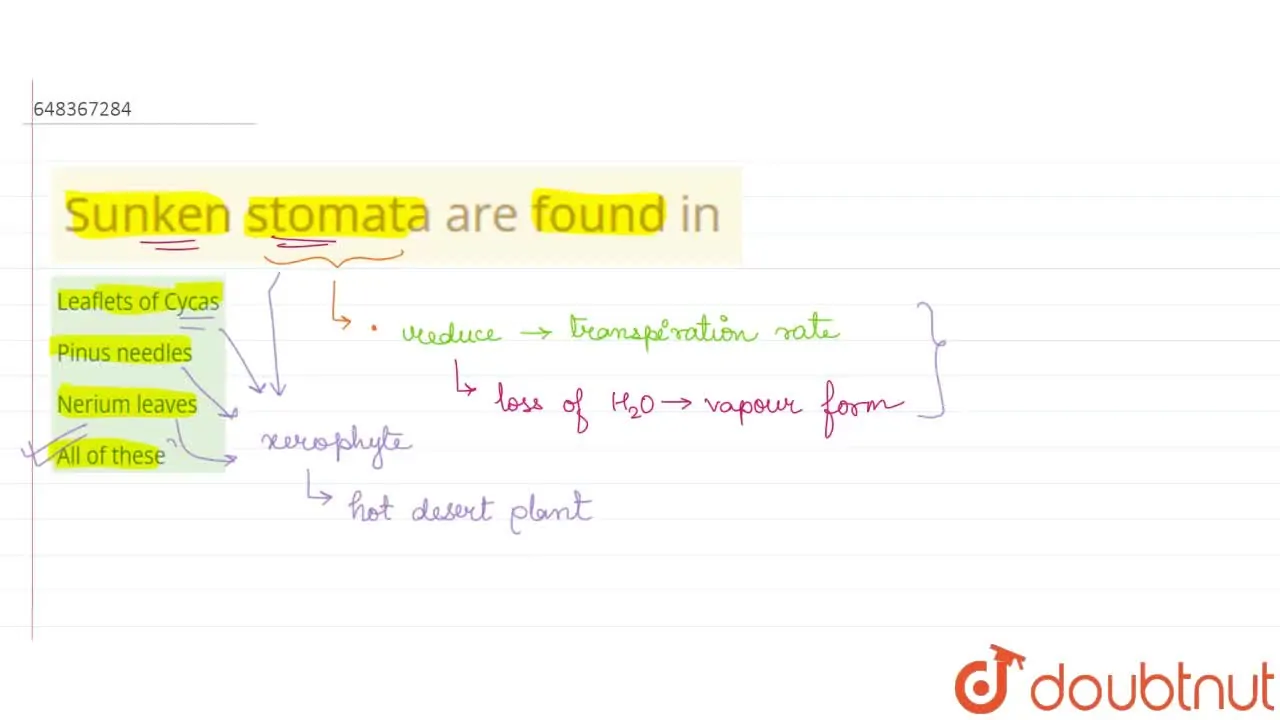 648367284
Sunken stomata are found in
Leaflets of Cycas
Pinus needles
Nerium leaves
All of these
• reduce → transpiration rate
loss of H2O → vapour form
xerophyte
hot desert plant
doubtnut